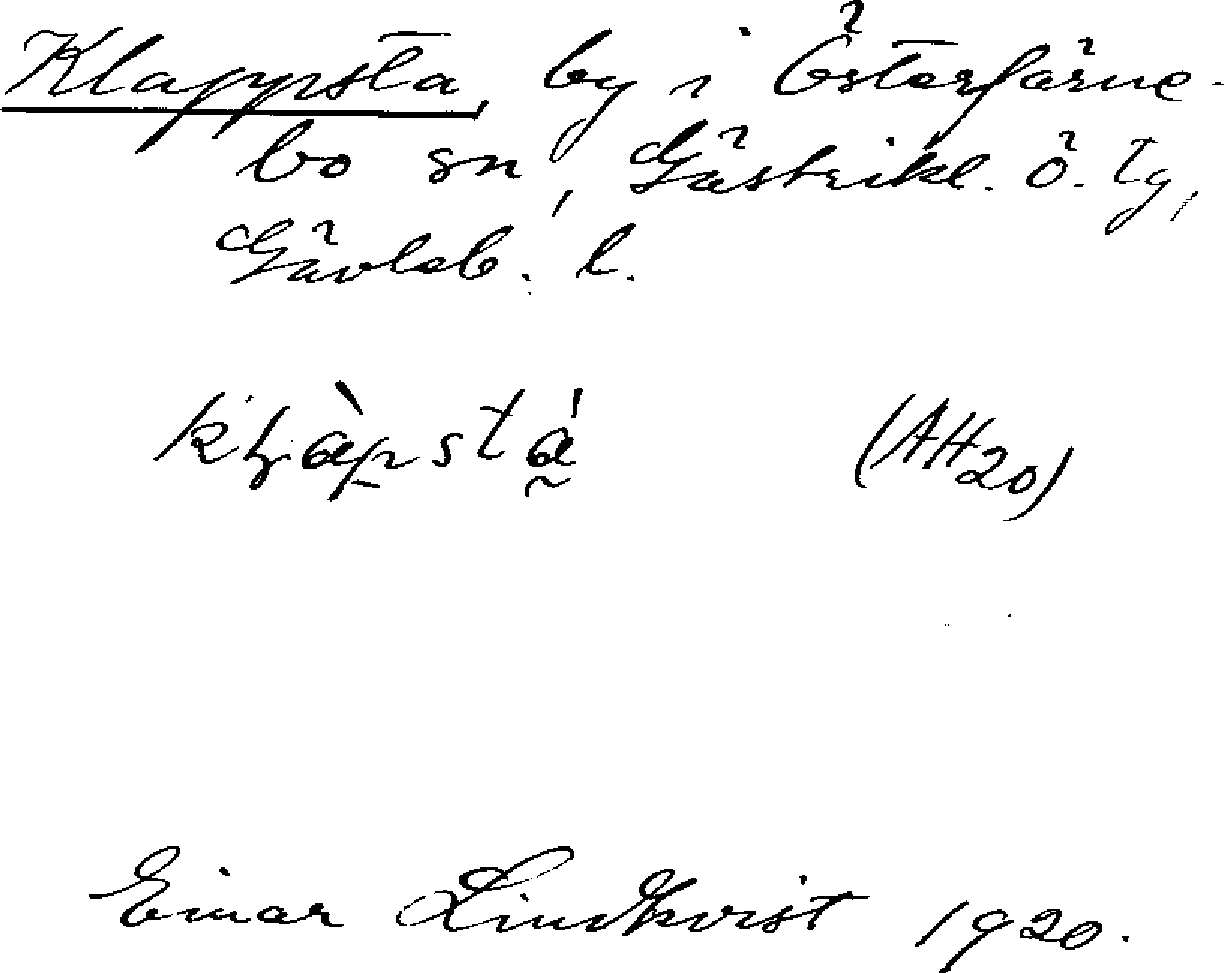 Klappsta, by i Österfärne-
bo sn, Gästrikl. ö. tg,
Gävleb. l.
(AH20)
Einar Lindkvist 1920.